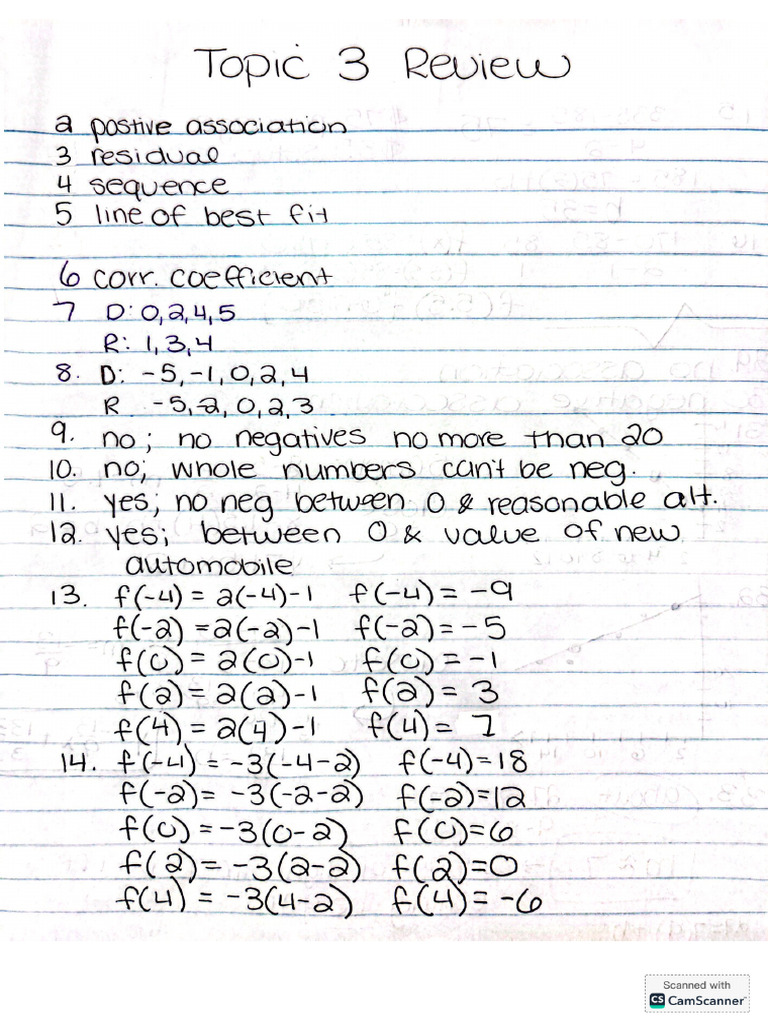 Topic 3 Review
2 postive association
3 residual
4 sequence
5 line of best fit
6 corr. coefficient
7 D: 0,2,4,5
R: 1,3,4
8. D: -5,-1,0,2,4
R -5,-2,0,2,3
9. no; no negatives no more than 20
10. no; whole numbers can't be neg.
11. yes; no neg between 0 & reasonable alt.
12. yes; between 0 & value of new
automobile
13. f(-4) = 2(-4)-1 f(-4) = -9
f(-2) = 2(-2)-1 f(-2) = -5
f(0) = 2(0)-1 f(0) = -1
f(2) = 2(2)-1 f(2) = 3
f(4) = 2(4)-1 f(4) = 7
14. f(-4) = -3(-4-2) f(-4)=18
f(-2) = -3(-2-2) f(-2)=12
f(0) = -3(0-2) f(0)=6
f(2) = -3(2-2) f(2)=0
f(4) = -3(4-2) f(4) = -6
Scanned with
CS CamScanner